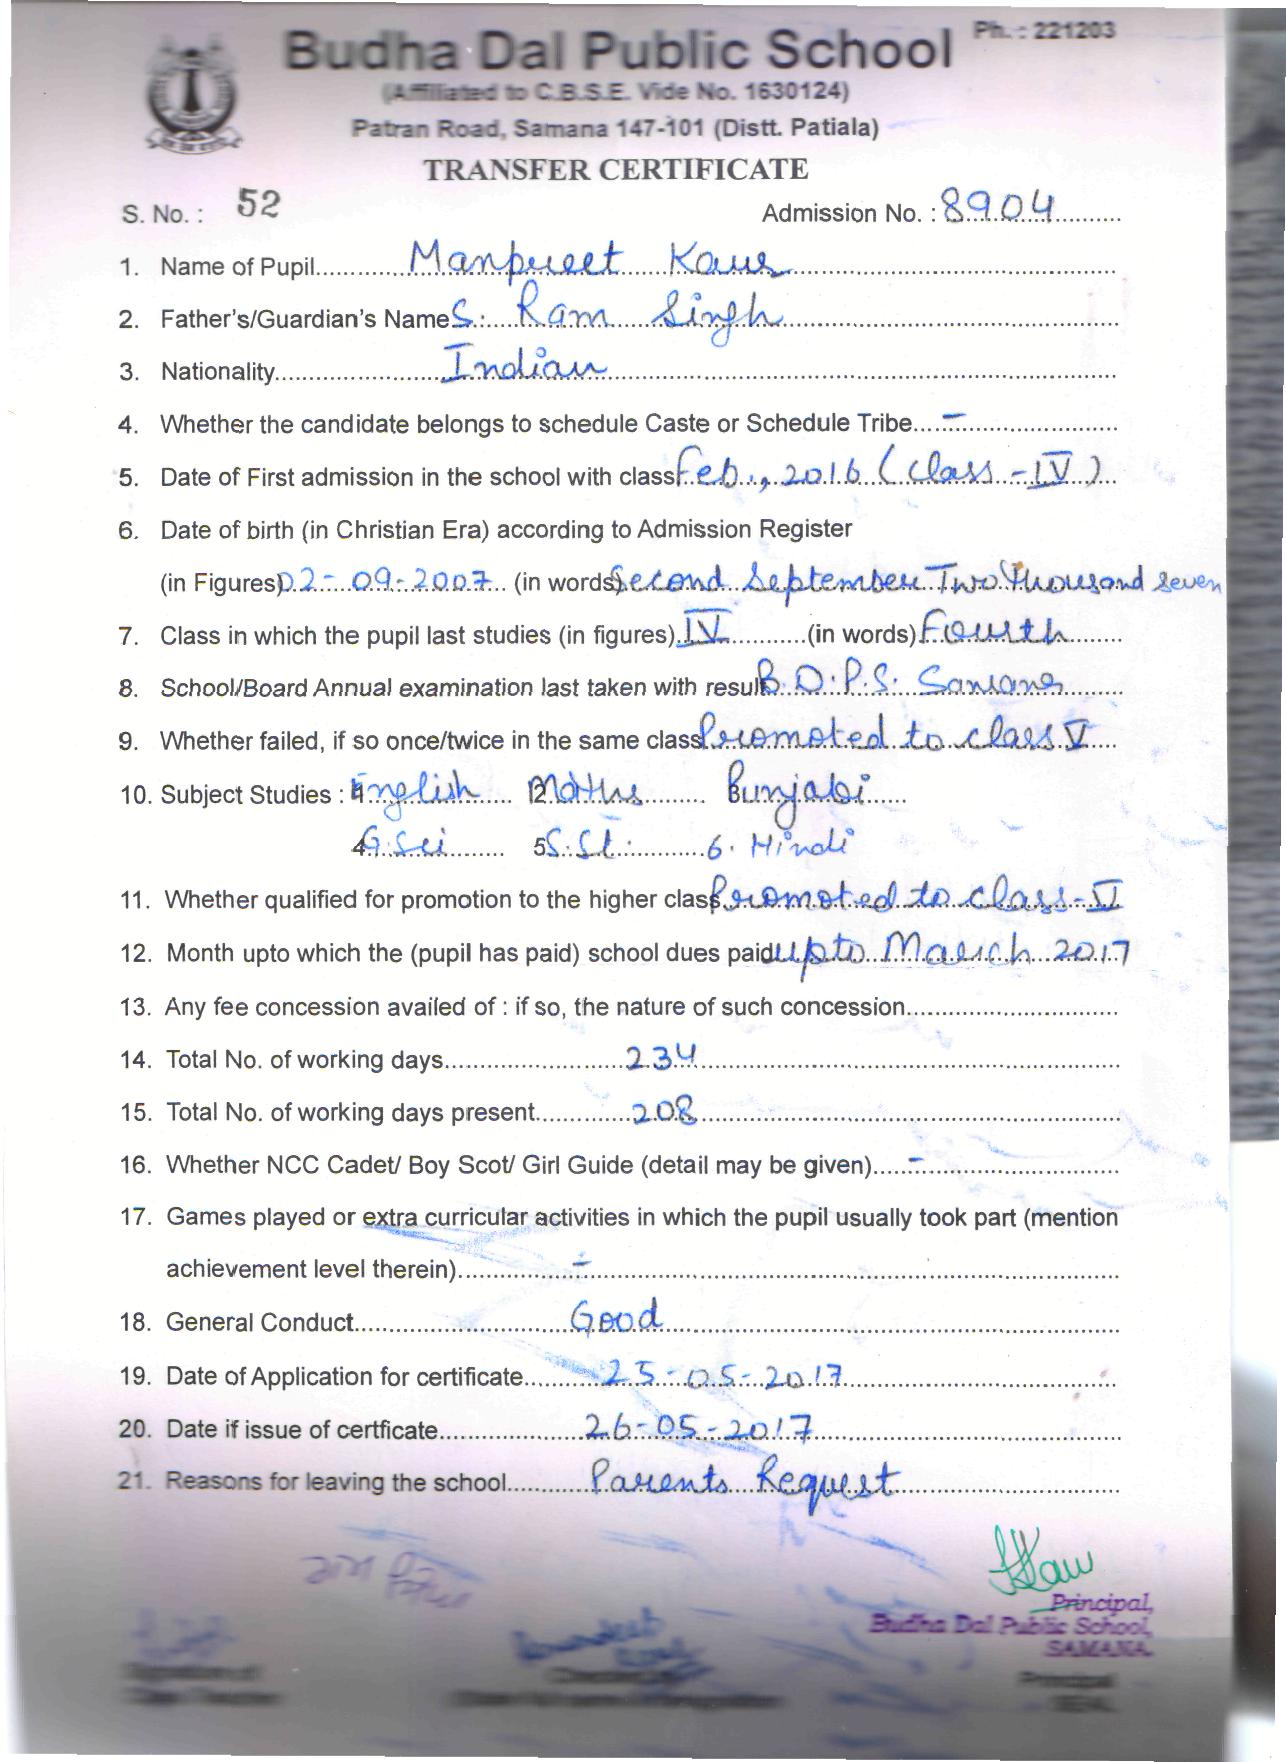 Ph. : 221203
Budha Dal Public School
(Affiliated to C.B.S.E. Vide No. 1630124)
Patran Road, Samana 147-101 (Distt. Patiala)
TRANSFER CERTIFICATE
S. No. : 52 Admission No. : 8904
1. Name of Pupil Manpreet Kaur
2. Father's/Guardian's Name S. Ram Singh
3. Nationality Indian
4. Whether the candidate belongs to schedule Caste or Schedule Tribe -
5. Date of First admission in the school with class Feb., 2016 (Class - IV)
6. Date of birth (in Christian Era) according to Admission Register
(in Figures) 02-09-2007 (in words) Second September Two Thousand Seven
7. Class in which the pupil last studies (in figures) IV (in words) Fourth
8. School/Board Annual examination last taken with result B.D.P.S. Samana
9. Whether failed, if so once/twice in the same class Promoted to class V
10. Subject Studies : 1 English 2 Maths Punjabi
4 G.Sci 5 S.St. 6. Hindi
11. Whether qualified for promotion to the higher class Promoted to class-V
12. Month upto which the (pupil has paid) school dues paid upto March 2017
13. Any fee concession availed of : if so, the nature of such concession
14. Total No. of working days 234
15. Total No. of working days present 208
16. Whether NCC Cadet/ Boy Scot/ Girl Guide (detail may be given) -
17. Games played or extra curricular activities in which the pupil usually took part (mention
achievement level therein) -
18. General Conduct Good
19. Date of Application for certificate 25-05-2017
20. Date if issue of certficate 26-05-2017
21. Reasons for leaving the school Parents Request
Principal,
Budha Dal Public School,
SAMANA.
Signature of
Class Teacher
Principal
SEAL